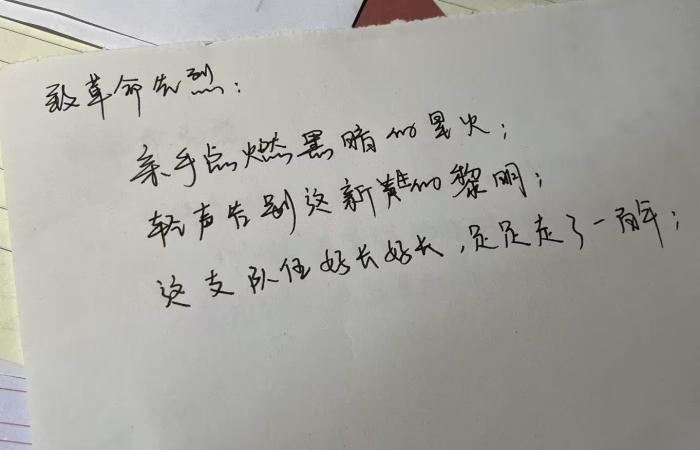 致革命先烈:
亲手点燃黑暗的星火;
轻声告别这新难的黎明;
这支队伍好长好长,足足走了一百年;